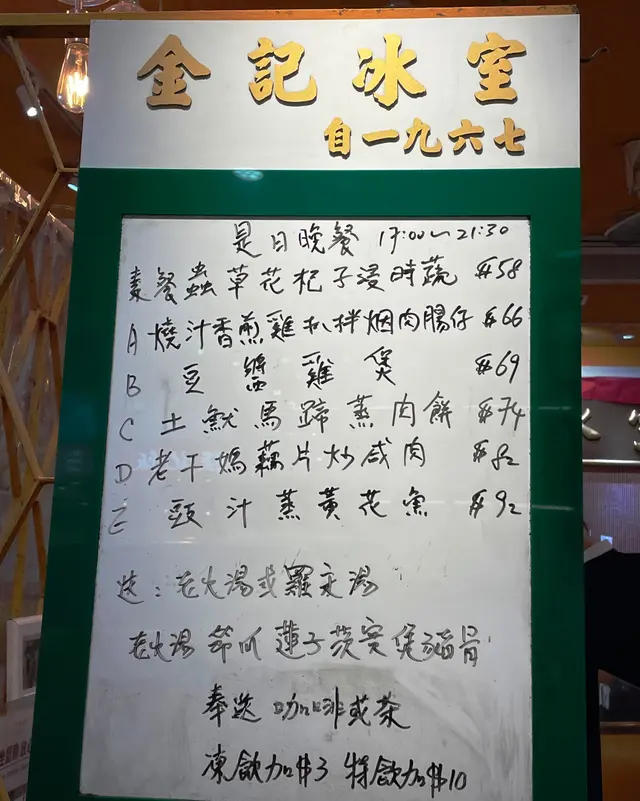 金記冰室
自一九六七
是日晚餐 17:00~21:30
素餐蟲草花杞子浸時蔬 #58
A 燒汁香煎雞扒拌烟肉腸仔 #66
B 豆醬雞煲 #69
C 土魷馬蹄蒸肉餅 #74
D 老干媽藕片炒咸肉 #82
E 頭汁蒸黃花魚 #92
送：老火湯或羅宋湯
老火湯 節瓜蓮子茨實煲豬骨
奉送咖啡或茶
凍飲加$3 特飲加$10